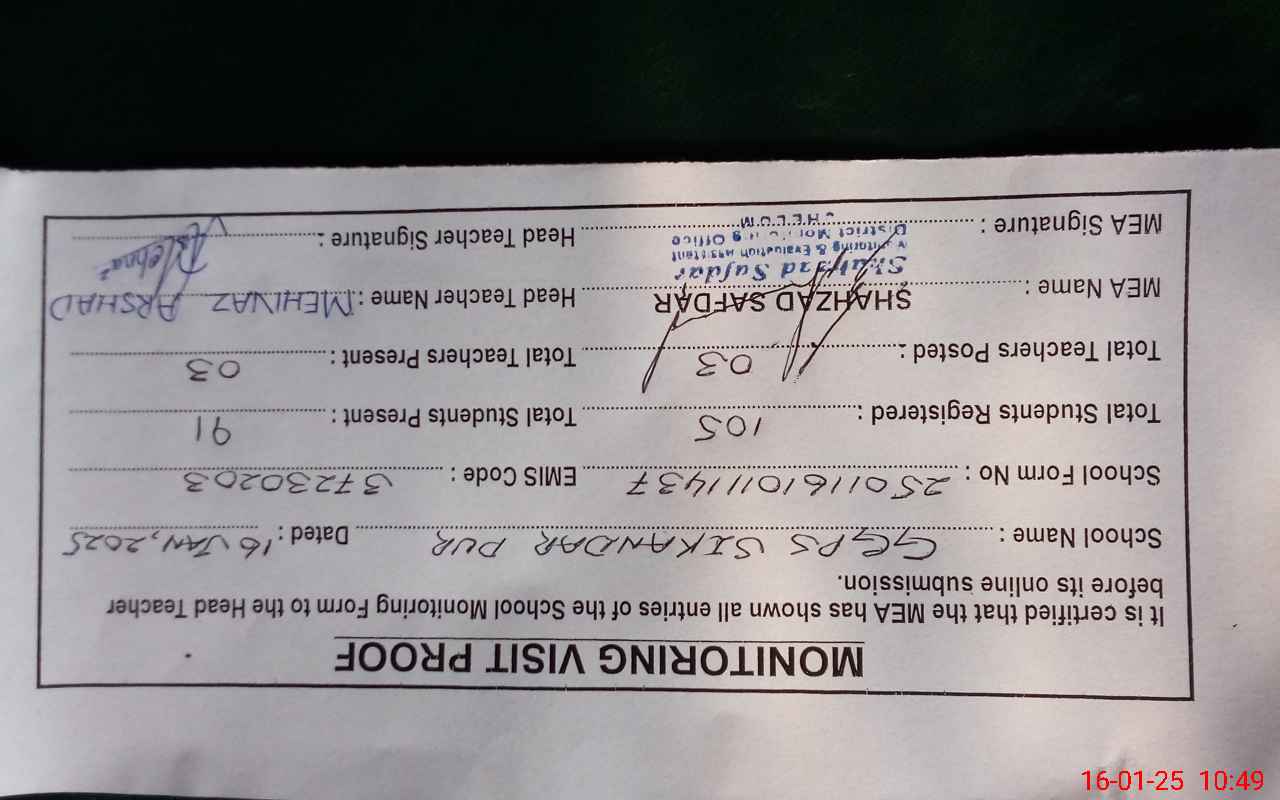 MONITORING VISIT PROOF
It is certified that the MEA has shown all entries of the School Monitoring Form to the Head Teacher
before its online submission.
School Name : GGPS SIKANDAR PUR Dated : 16 JAN, 2025
School Form No : 2501161011437 EMIS Code : 37230203
Total Students Registered : 105 Total Students Present : 91
Total Teachers Posted : 03 Total Teachers Present : 03
MEA Name : SHAHZAD SAFDAR Head Teacher Name : MEHINAZ ARSHAD
Shahzad Safdar
Monitoring & Evaluation Assistant
District Monitoring Office
JHELUM
MEA Signature : Head Teacher Signature :
16-01-25 10:49